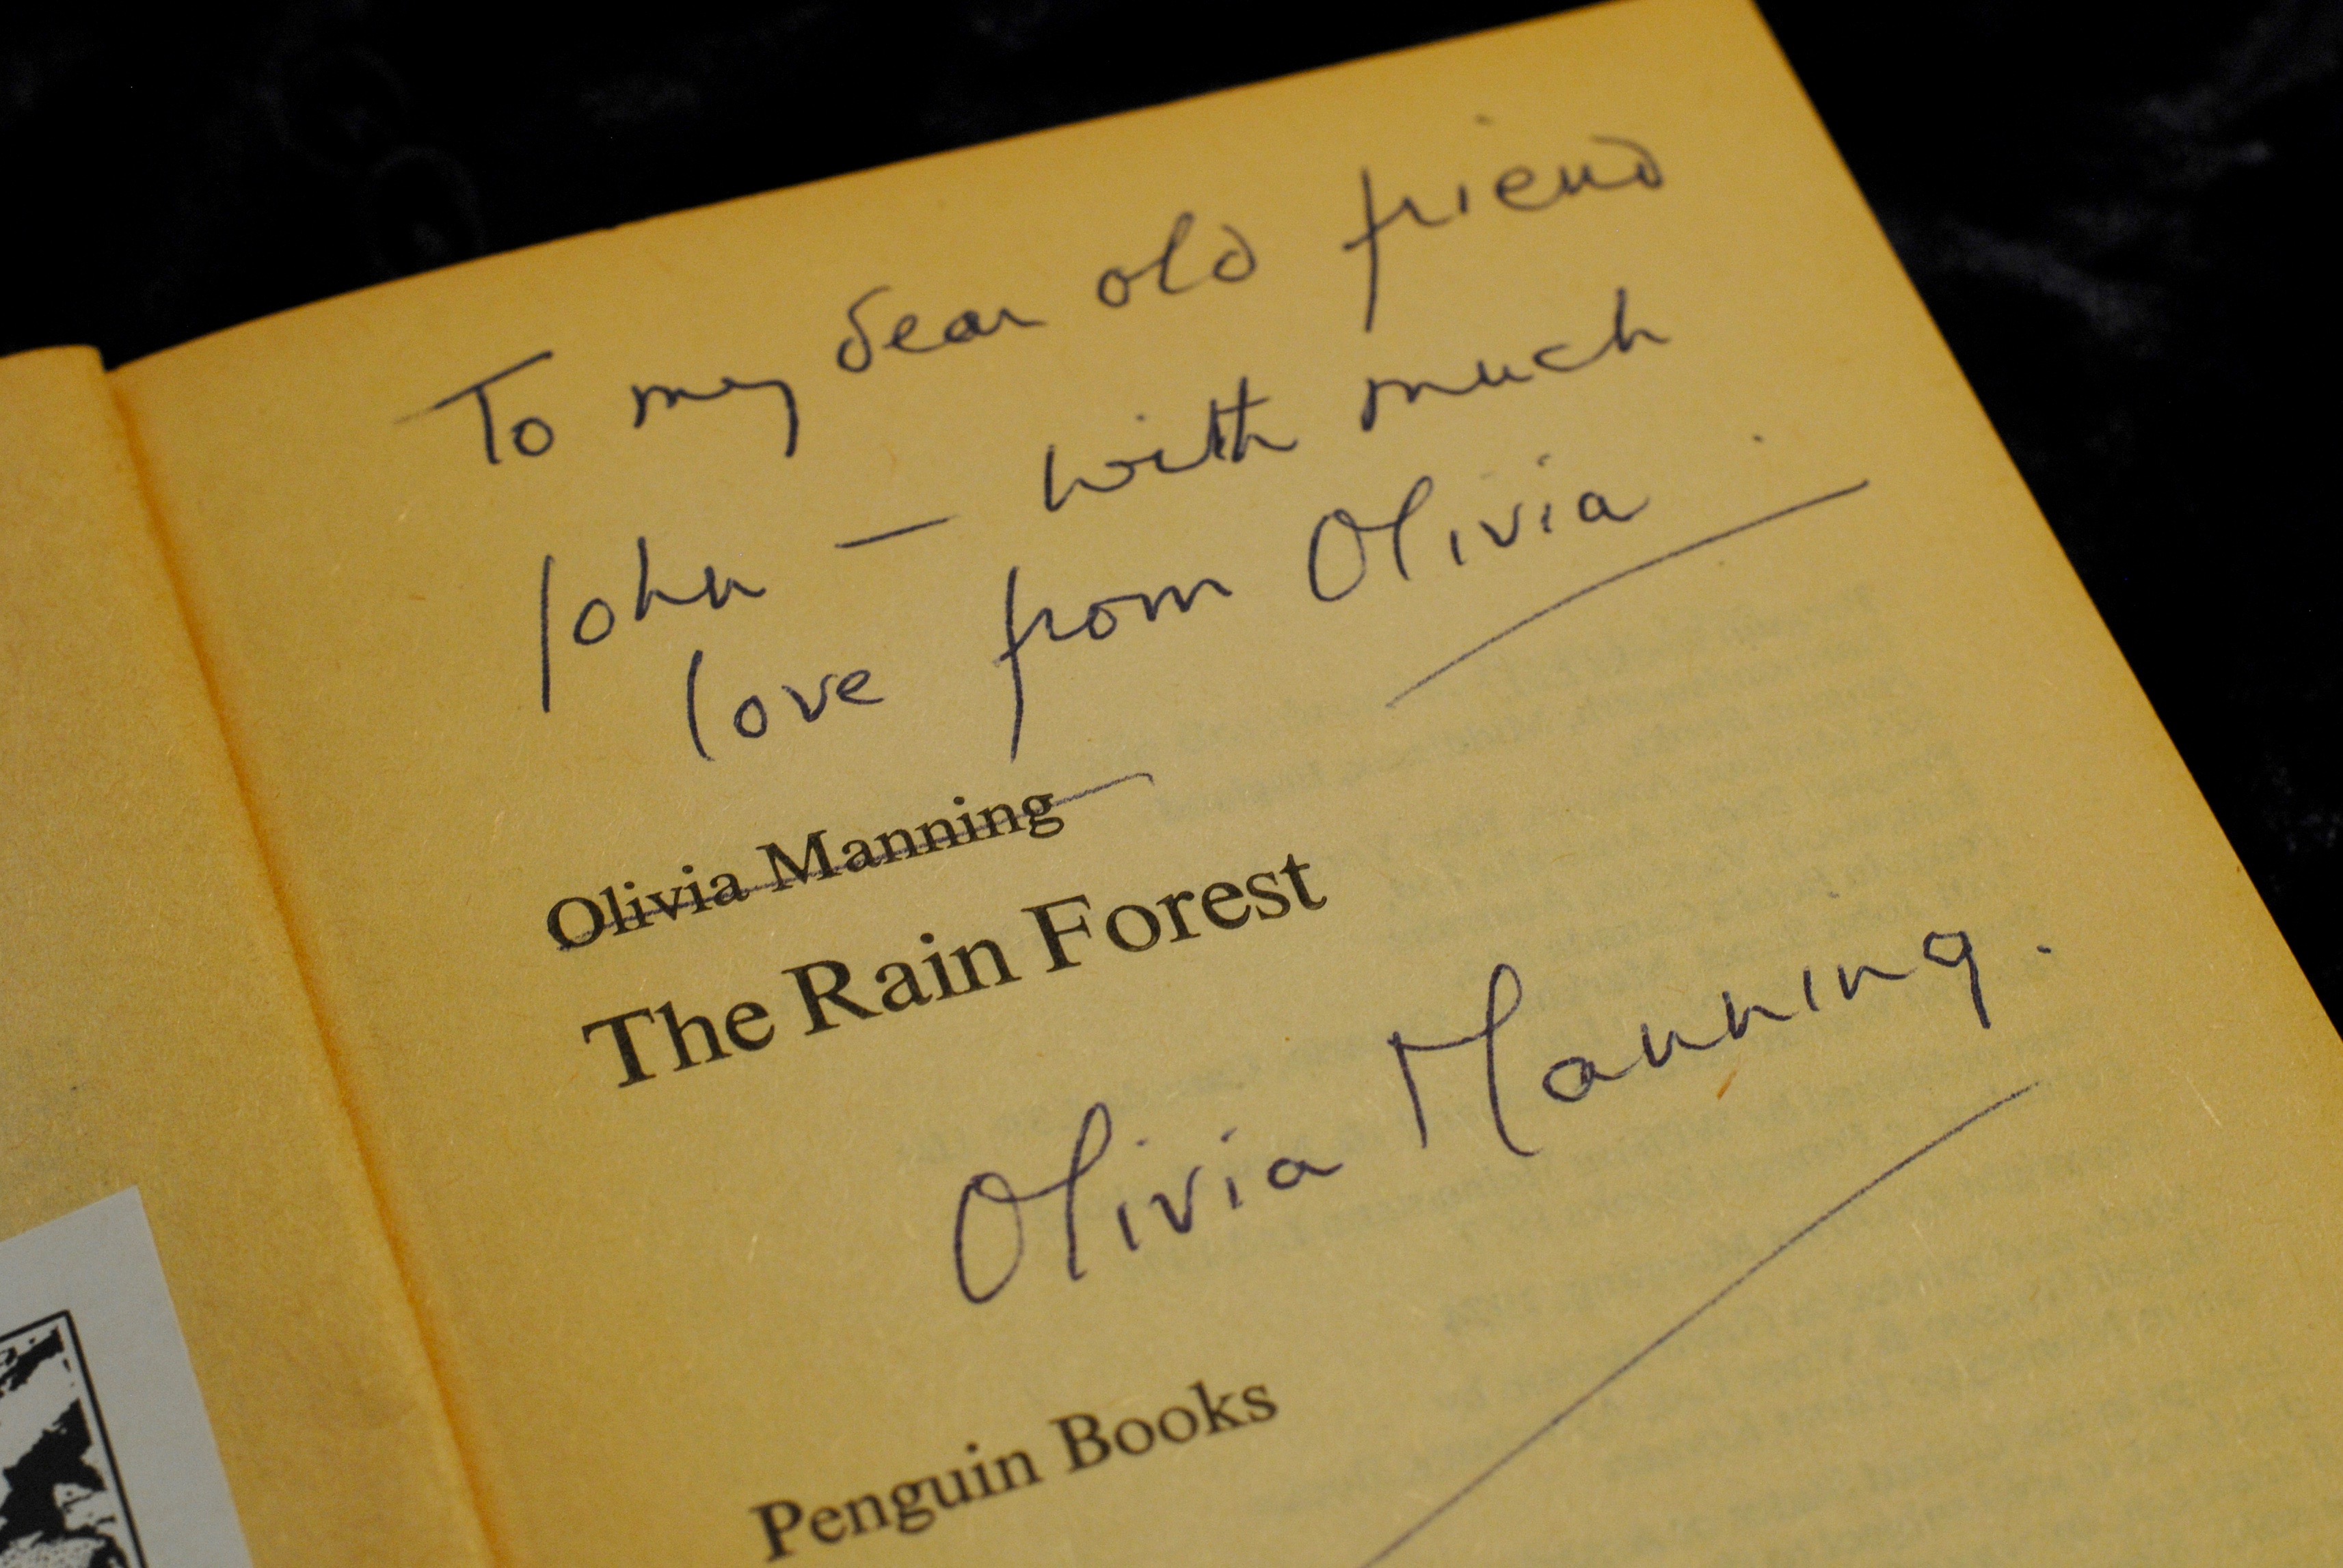 To my dear old friend
John — with much
love from Olivia
Olivia Manning
The Rain Forest
Olivia Manning.
Penguin Books